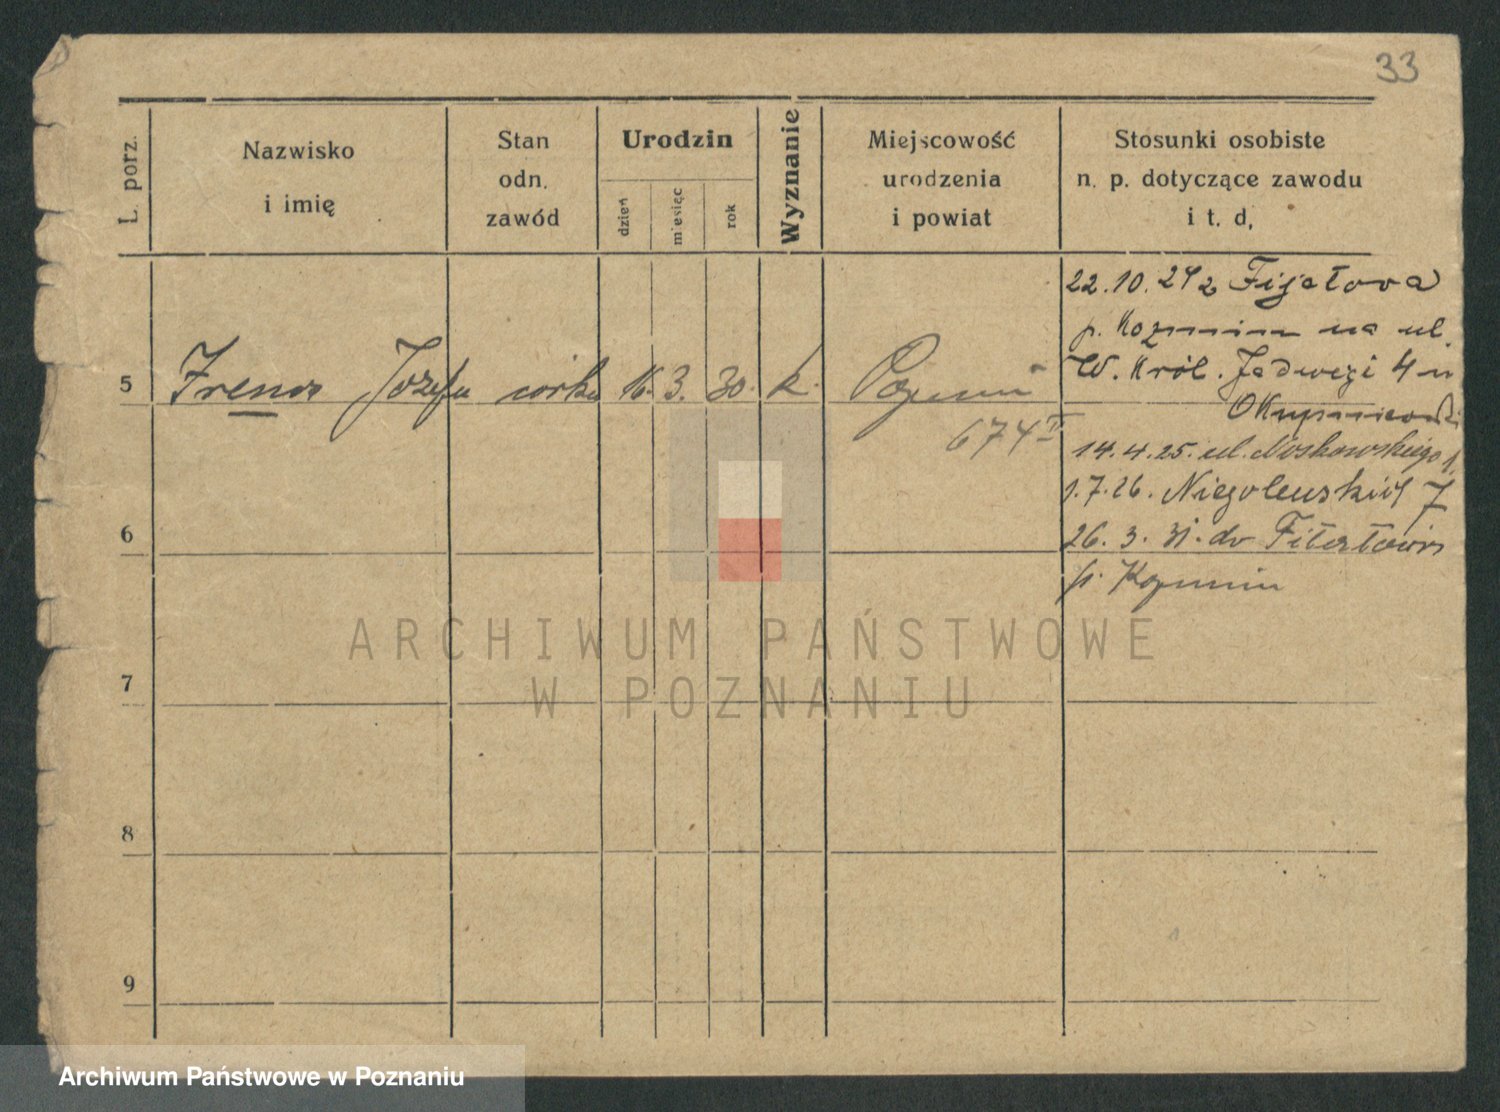 33
L. porz.
Nazwisko
i imię
Stan
odn.
zawód
Urodzin
dzień
miesiąc
rok
Wyznanie
Miejscowość
urodzenia
i powiat
Stosunki osobiste
n. p. dotyczące zawodu
i t. d,
5
Irena Józefa córka 16. 3. 30. k. Poznań
674 II
22.10.24 z Fijałowa
p. Kozmin na ul.
W. Król. Jadwigi 4
14.4.25. ul. Noskowskiego
1.7.26. Niegolewskich 7
26. 3. 31. do
p. Kozmin
6
7
8
9
ARCHIWUM PAŃSTWOWE
W POZNANIU
Archiwum Państwowe w Poznaniu